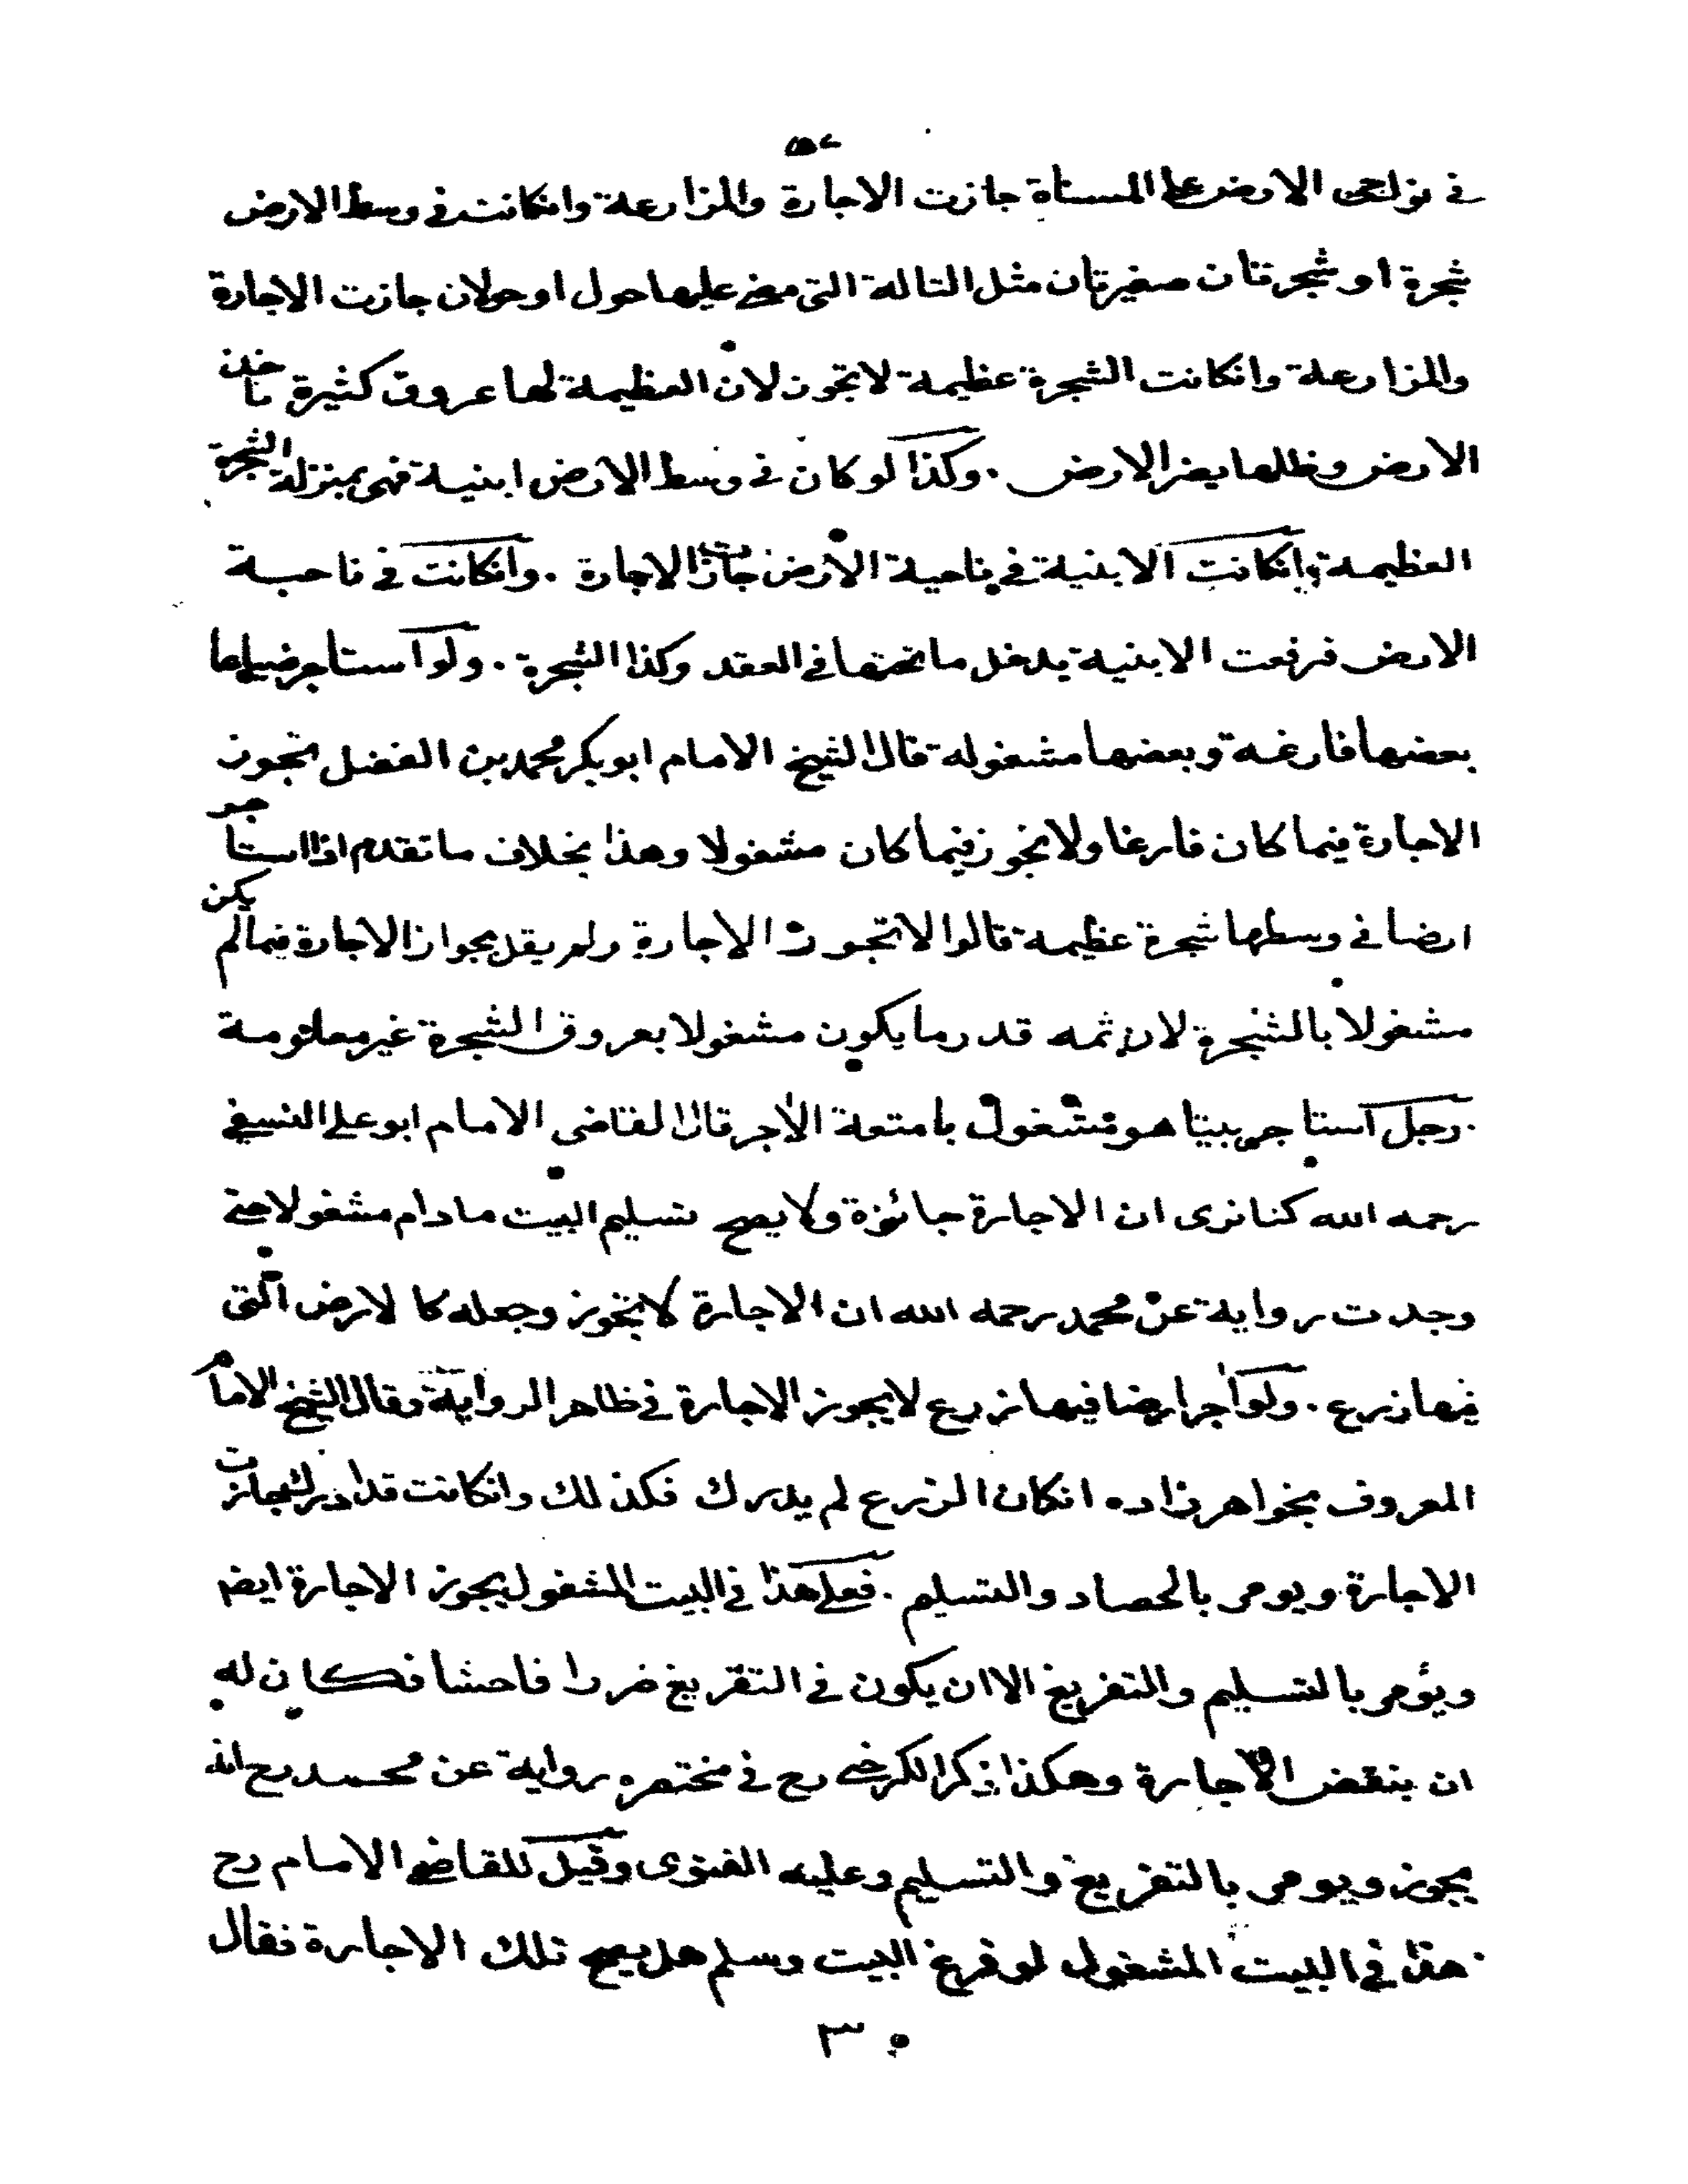 في نواحى الارض على المسناة جازت الاجارة والمزارعة وانكانت في وسط الارض
شجرة او شجرتان صغيرتان مثل التالة التى مضى عليها حول او حولان جازت الاجارة
والمزارعة وانكانت الشجرة عظيمة لا تجوز لان العظيمة لها عروق كثيرة تاخذ
الارض وظلها يضر الارض . وكذا لو كان في وسط الارض ابنية فهى بمنزلة الشجرة
العظيمة وانكانت الابنية في ناحية الارض جازت الاجارة . وانكانت في ناحية
الارض فرفعت الابنية يدخل ما تحتها في العقد وكذا الشجرة . ولو استاجر ضياعا
بعضها فارغة وبعضها مشغولة قال الشيخ الامام ابو بكر محمد بن الفضل تجوز
الاجارة فيما كان فارغا ولا تجوز فيما كان مشغولا وهذا بخلاف ما تقدم اذا استاجر
ارضا في وسطها شجرة عظيمة قالوا لا تجوز الاجارة ولم يقل بجواز الاجارة فيما لم يكن
مشغولا بالشجرة لان ثمه قدر ما يكون مشغولا بعروق الشجرة غير معلومة
. رجل استاجر بيتا هو مشغول بامتعة الاجر قال القاضى الامام ابو على النسفي
رحمه الله كنا نرى ان الاجارة جائزة ولا يصح تسليم البيت ما دام مشغولا حتى
وجدت رواية عن محمد رحمه الله ان الاجارة لا تجوز وجعله كالارض التى
فيها زرع . ولو اجر ارضا فيها زرع لا يجوز الاجارة في ظاهر الرواية وقال الشيخ الامام
المعروف بخواهر زاده انكان الزرع لم يدرك فكذلك وانكانت قد ادرك جازت
الاجارة ويومر بالحصاد والتسليم . فعلى هذا في البيت المشغول يجوز الاجارة ايضا
ويؤمر بالتسليم والتفريغ الا ان يكون في التفريغ ضررا فاحشا فكان له
ان ينقض الاجارة وهكذا ذكر الكرخي رح في مختصره رواية عن محمد رح انه
يجوز ويومر بالتفريغ والتسليم وعليه الفتوى وقيل للقاضي الامام رح
. هذا في البيت المشغول لو فرغ البيت وسلم هل يصح تلك الاجارة فقال